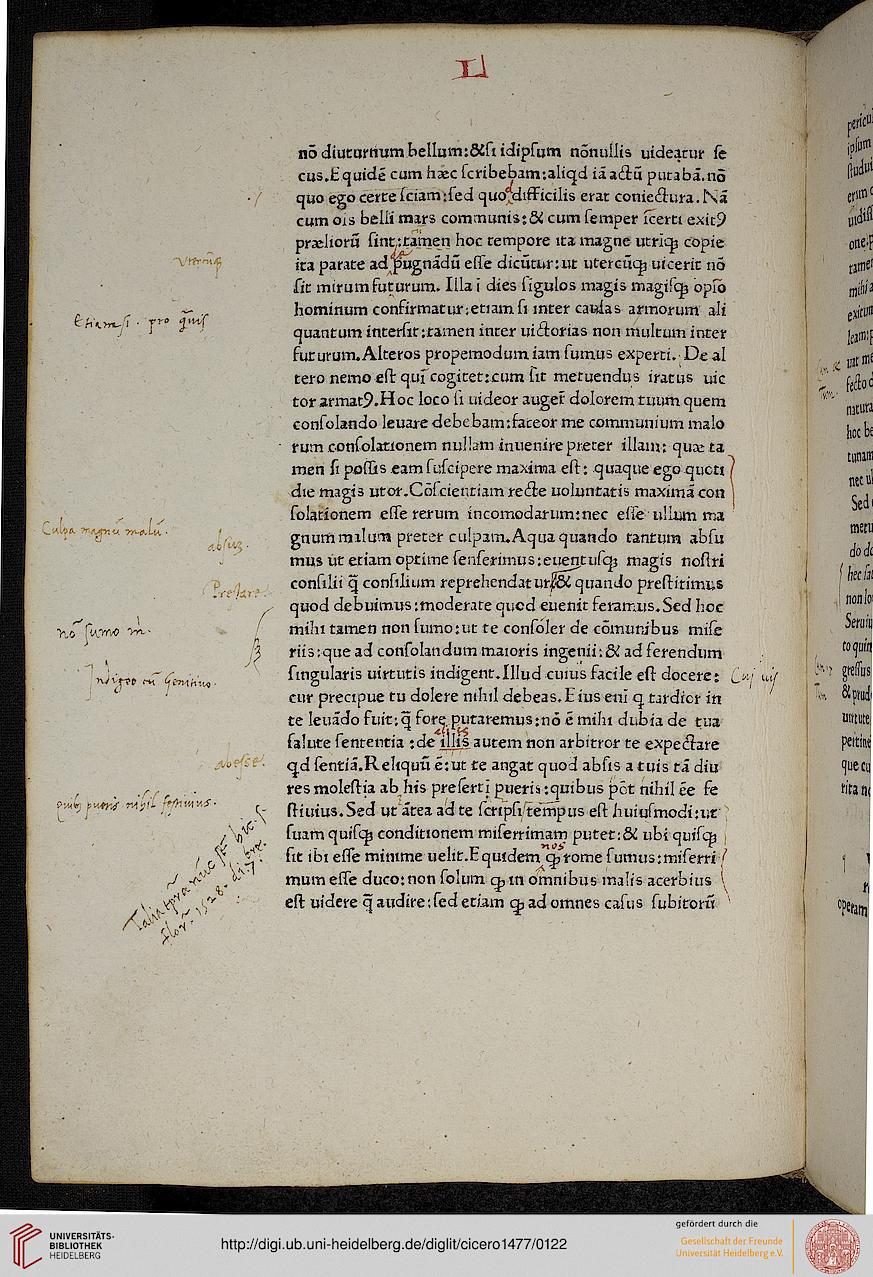 L
nō diuturnum bellum:&ſi idipſum nōnullis uideatur ſe
cus.Equidē cum hæc ſcribebam:aliqd iā actū putabā.nō
quo ego certe ſciam:ſed quod difficilis erat coniectura.Nā
cum ois belli mars communis:& cum ſemper īcerti exitꝰ
præliorū ſint:tamen hoc tempore ita magne utriqꝫ copie
ita parate ad de pugnādū eſſe dicūtur:ut utercūqꝫ uicerit nō
utercūqꝫ
ſit mirum futurum. Illa ī dies ſigulos magis magiſqꝫ opīo
hominum confirmatur:etiam ſi inter cauſas armorum ali
Etiamſi . pro q̄uis
quantum interſit:tamen inter uictorias non multum inter
futurum.Alteros propemodum iam ſumus experti. De al
tero nemo eſt quī cogitet:cum ſit metuendus iratus uic
tor armatꝰ.Hoc loco ſi uideor augeř dolorem tuum quem
conſolando leuare debebam:fateor me communium malo
rum conſolationem nullam inuenire preter illam: quæ ta
men ſi poſſis eam ſuſcipere maxima eſt: quaque ego quoti
die magis utor.Cōſcientiam recte uoluntatis maximā con
ſolationem eſſe rerum incomodarum:nec eſſe ullum ma
Culpa magnū malū.
gnum malum preter culpam.Aqua quando tantum abſu
mus ut etiam optime ſenſerimus:euentuſqꝫ magis noſtri
conſilii q̄ conſilium reprehendatur/& quando preſtitimus
Preſtare.
quod debuimus:moderate quod euenit feramus.Sed hoc
mihi tamen non ſumo:ut te conſoler de cōmunibus miſe
nō ſumo m.
riis:que ad conſolandum maioris ingenii:& ad ferendum
ſingularis uirtutis indigent.Illud cuius facile eſt docere:
Indigeo cū Genitiuo.
Cuiuis
cur precipue tu dolere nihil debeas.Eius enī q tardior in
te leuādo fuit:q̄ fore putaremus:nō ē mihi dubia de tua
ſalute ſententia :de illis autem non arbitror te expectare
qd ſentiā.Reliquū ē:ut te angat quod abſis a tuis tā diu
abeſſe.
res moleſtia ab his preſertī pueris:quibus pōt nihil ēe fe
quibꝫ pueris nihil feſtiuius.
ſtiuius.Sed ut ātea ad te ſcripſi/tempus eſt huiuſmodi:ut
ſuam quiſqꝫ conditionem miſerrimam putet:& ubi quiſqꝫ
ſit ibi eſſe minime uelit.Equidem nos qꝫ rome ſumus:miſerri
mum eſſe duco:non ſolum qꝫ in omnibus malis acerbius
eſt uidere q̄ audire:ſed etiam qꝫ ad omnes caſus ſubitorū
UNIVERSITÄTS-
BIBLIOTHEK
HEIDELBERG
http://digi.ub.uni-heidelberg.de/diglit/cicero1477/0122
gefördert durch die
Gesellschaft der Freunde
Universität Heidelberg e.V.